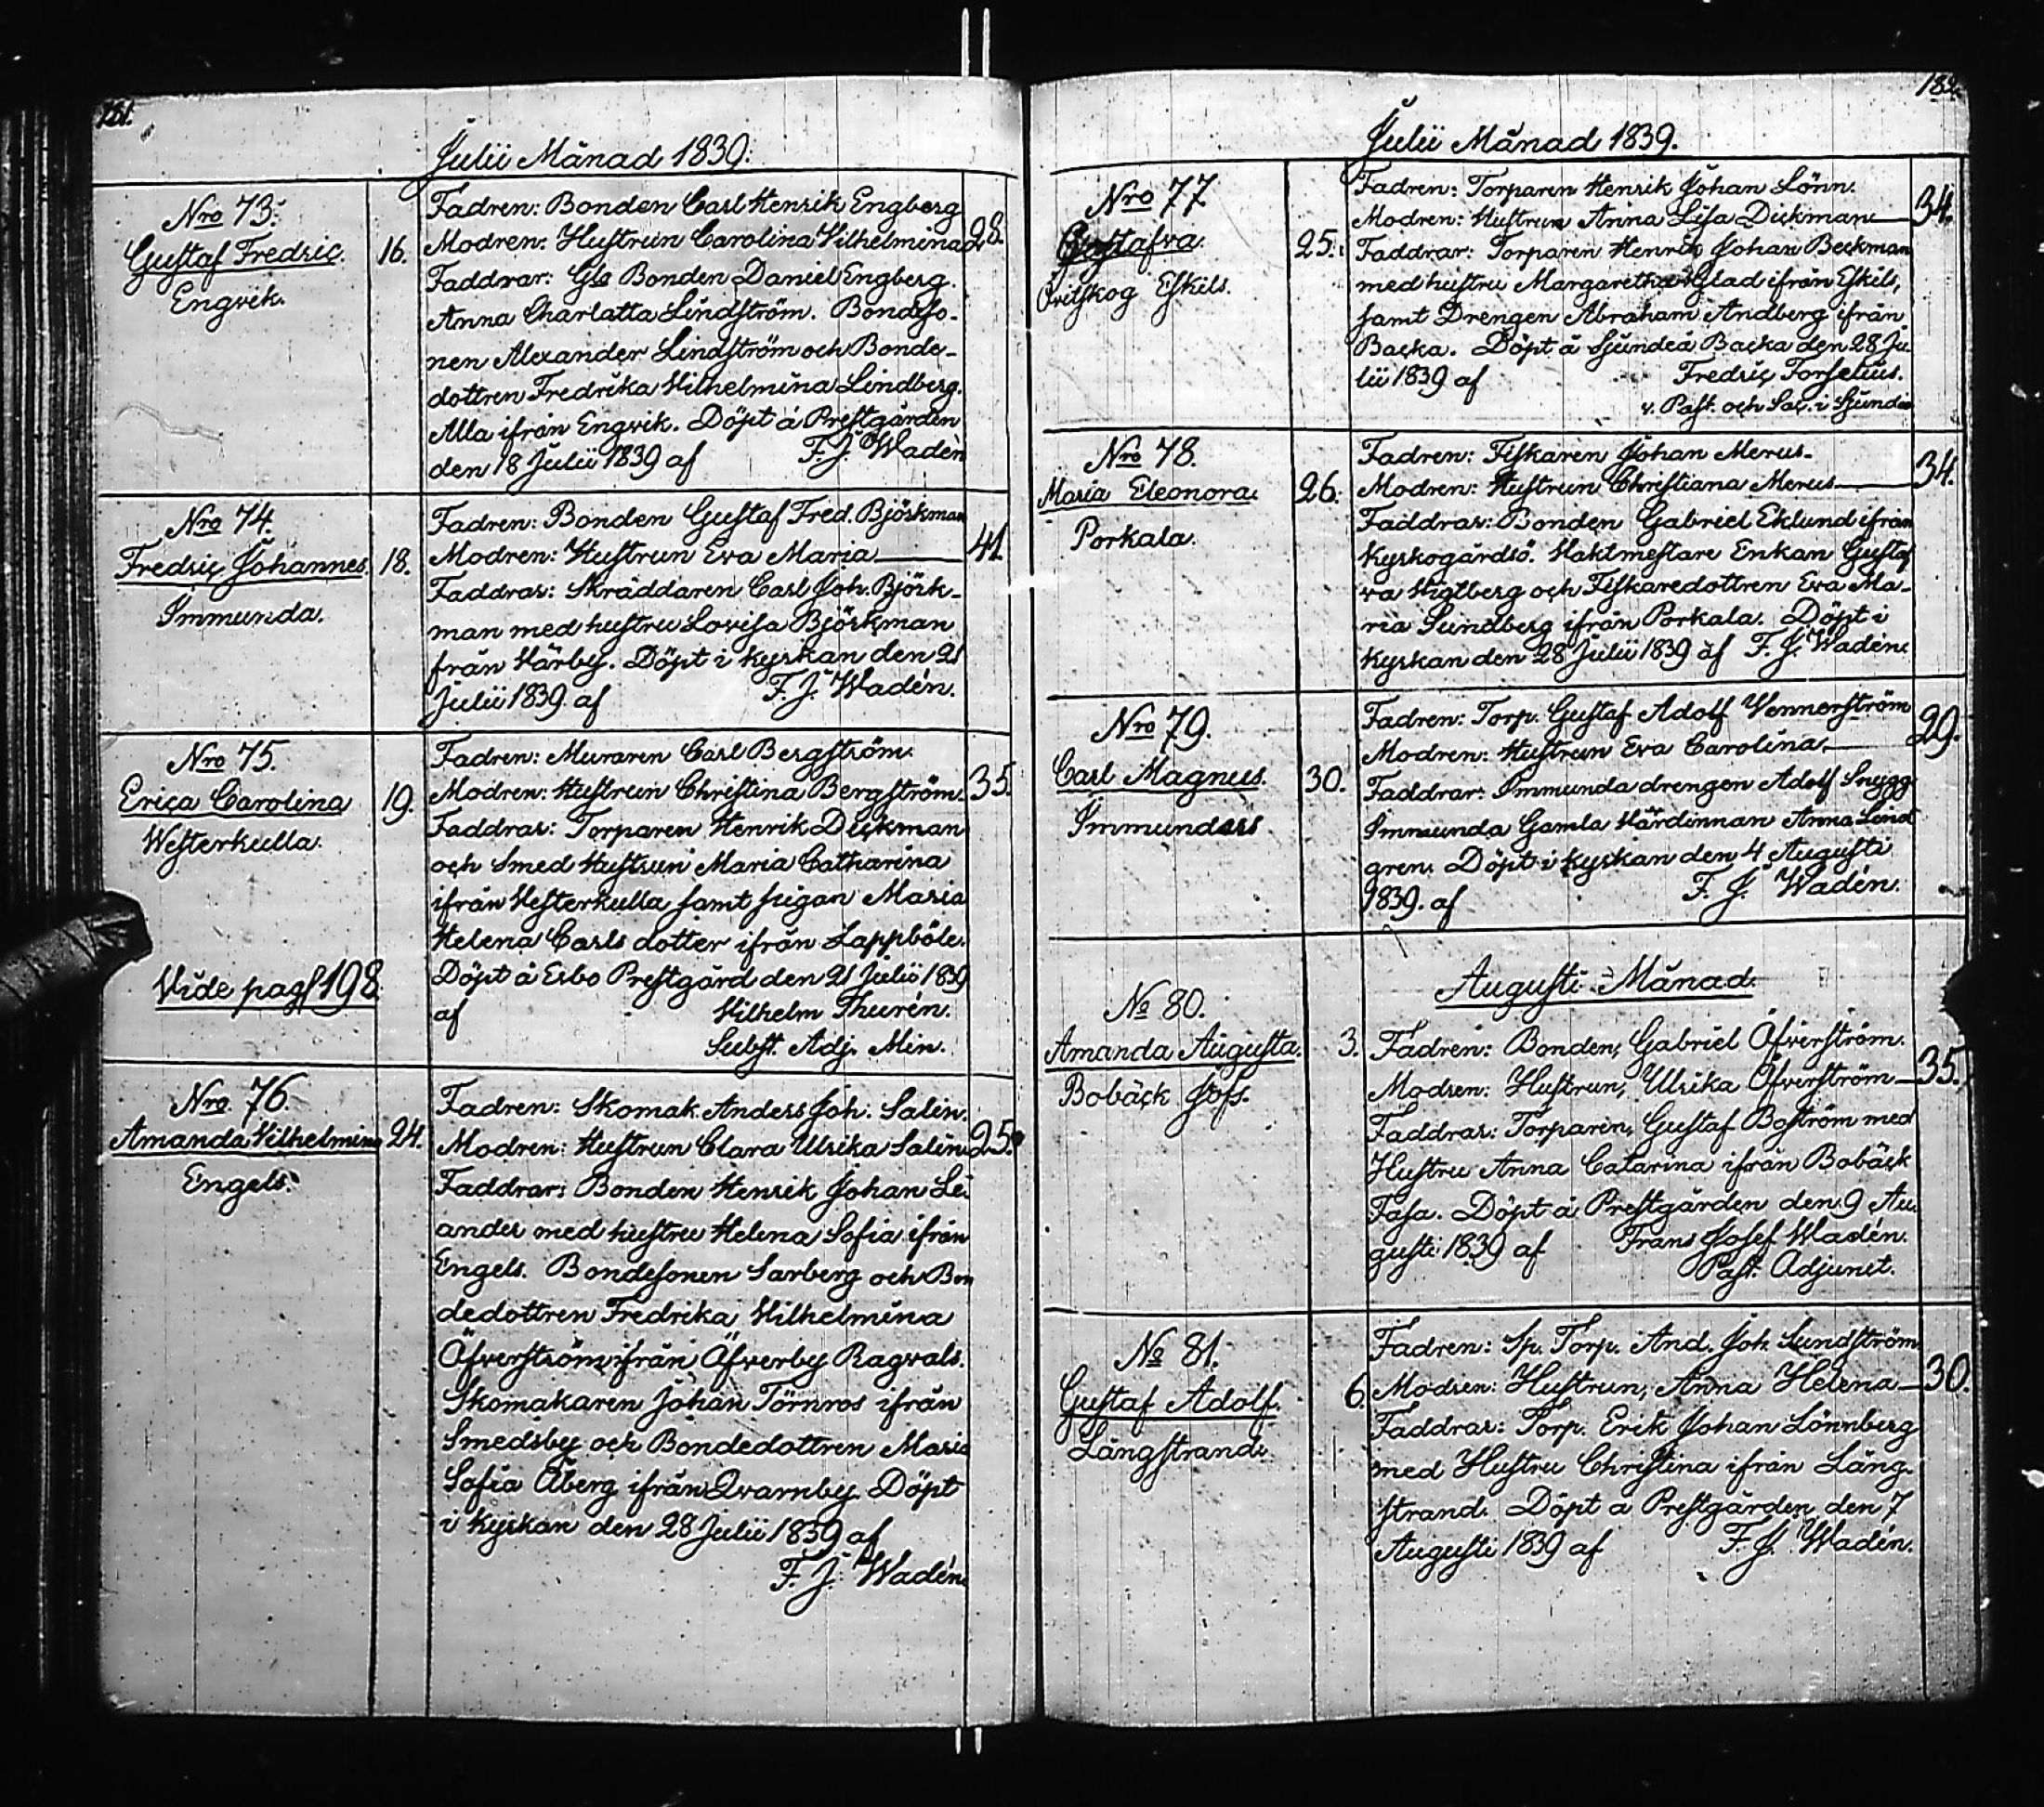 181.
Julii Månad 1839.
Nro 73.
Gustaf Fredric.
Engvik.
16.
Fadren: Bonden Carl Henrik Engberg
Modren: Hustrun Carolina Vilhelmina
28.
Faddrar: Gla Bonden Daniel Engberg.
Anna Charlatta Lindström. Bondeso-
nen Alexander Lindström och Bonde-
dottren Fredrika Vilhelmina Lindberg.
Alla ifrån Engvik. Döpt å Prestgården
den 18 Julii 1839 af F. J. Wadén
Nro 74.
Fredric Johannes.
Immunda.
18.
Fadren: Bonden Gustaf Fred. Björkman
Modren: Hustrun Eva Maria
41
Faddrar: Skräddaren Carl Joh. Björk-
man med hustru Lovisa Björkman
från Härby. Döpt i kyrkan den 21
Julii 1839. af F. J. Wadén.
Nro 75.
Erica Carolina
Westerkulla.
19.
Vide pag 198
Fadren: Muraren Carl Bergström.
Modren: Hustrun Christina Bergström.
35.
Faddrar: Torparen Henrik Dickman
och Smed Hustrun Maria Catharina
ifrån Vesterkulla samt pigan Maria
Helena Carls dotter ifrån Lappböle.
Döpt å Esbo Prestgård den 21 Julii 1839
af Vilhelm Thurén.
Subst. Adj. Min.
Nro. 76.
Amanda Vilhelmina
Engels.
24.
Fadren: Skomak. Anders Joh. Salin.
Modren: Hustrun Clara Ulrika Salin
25.
Faddrar: Bonden Henrik Johan Le-
ander med hustru Helena Sofia ifrån
Engels. Bondesonen Sarberg och Bon
dedottren Fredrika Vilhelmina
Öfverström ifrån Öfverby Ragvals.
Skomakaren Johan Törnros ifrån
Smedsby och Bondedottren Maria
Sofia Åberg ifrån Qvarnby. Döpt
i kyrkan den 28 Julii 1839 af
F. J. Wadén
182.
Julii Månad 1839.
Nro 77.
Gustafva.
Övitskog Eskils.
25.
Fadren: Torparen Henrik Johan Lönn.
Modren: Hustrun Anna Lisa Dickman
34.
Faddrar: Torparen Henrik Johan Beckman
med hustru Margaretha Glad ifrån Eskils,
samt Drengen Abraham Andberg ifrån
Backa. Döpt å Sjundeå Backa den 28 Ju-
lii 1839 af Fredric Forselius.
v. Past. och Sac. i Sjundeå
Nro 78.
Maria Eleonora.
Porkala.
26.
Fadren: Fiskaren Johan Merus.
Modren: Hustrun Christiana Merus
34.
Faddrar: Bonden Gabriel Eklund ifrån
kyrkogårdsö. Vaktmestare Enkan Gustaf
va Vigtberg och Fiskaredottren Eva Ma-
ria Sundberg ifrån Porkala. Döpt i
kyrkan den 28 Julii 1839 af F. J. Wadén.
Nro 79.
Carl Magnus.
Immundars
30.
Fadren: Torp. Gustaf Adolf Vennerström
Modren: Hustrun Eva Carolina.
29.
Faddrar: Immunda drengen Adolf Snygg
Immunda Gamla Värdinnan Anna Lind
gren. Döpt i kyrkan den 4 Augusti
1839. af F. J. Wadén.
Augusti Månad.
No 80.
Amanda Augusta.
Bobäck Jofs.
3.
Fadren: Bonden, Gabriel Öfverström.
Modren: Hustrun, Ulrika Öfverström
35.
Faddrar: Torparen, Gustaf Boström med
Hustru Anna Catarina ifrån Bobäck
Fasa. Döpt å Prestgården den 9 Au-
gusti 1839 af Frans Josef Wadén.
Past. Adjunct.
No 81.
Gustaf Adolf.
Långstrand.
6.
Fadren: Sp. Torp. And. Joh. Lundström
Modren: Hustrun, Anna Helena
30.
Faddrar: Torp. Erik Johan Lönnberg
med Hustru Christina ifrån Lång-
strand. Döpt a Prestgården den 7
Augusti 1839 af F. J. Wadén.